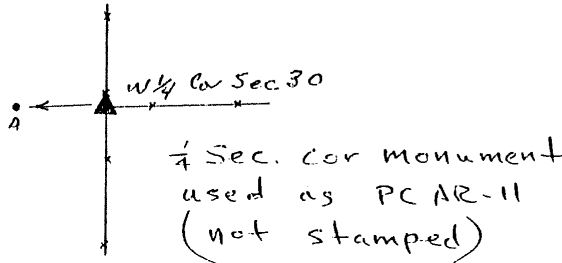 W ¼ Cor Sec. 30
A
¼ Sec. cor monument
used as PC AR-11
(not stamped)